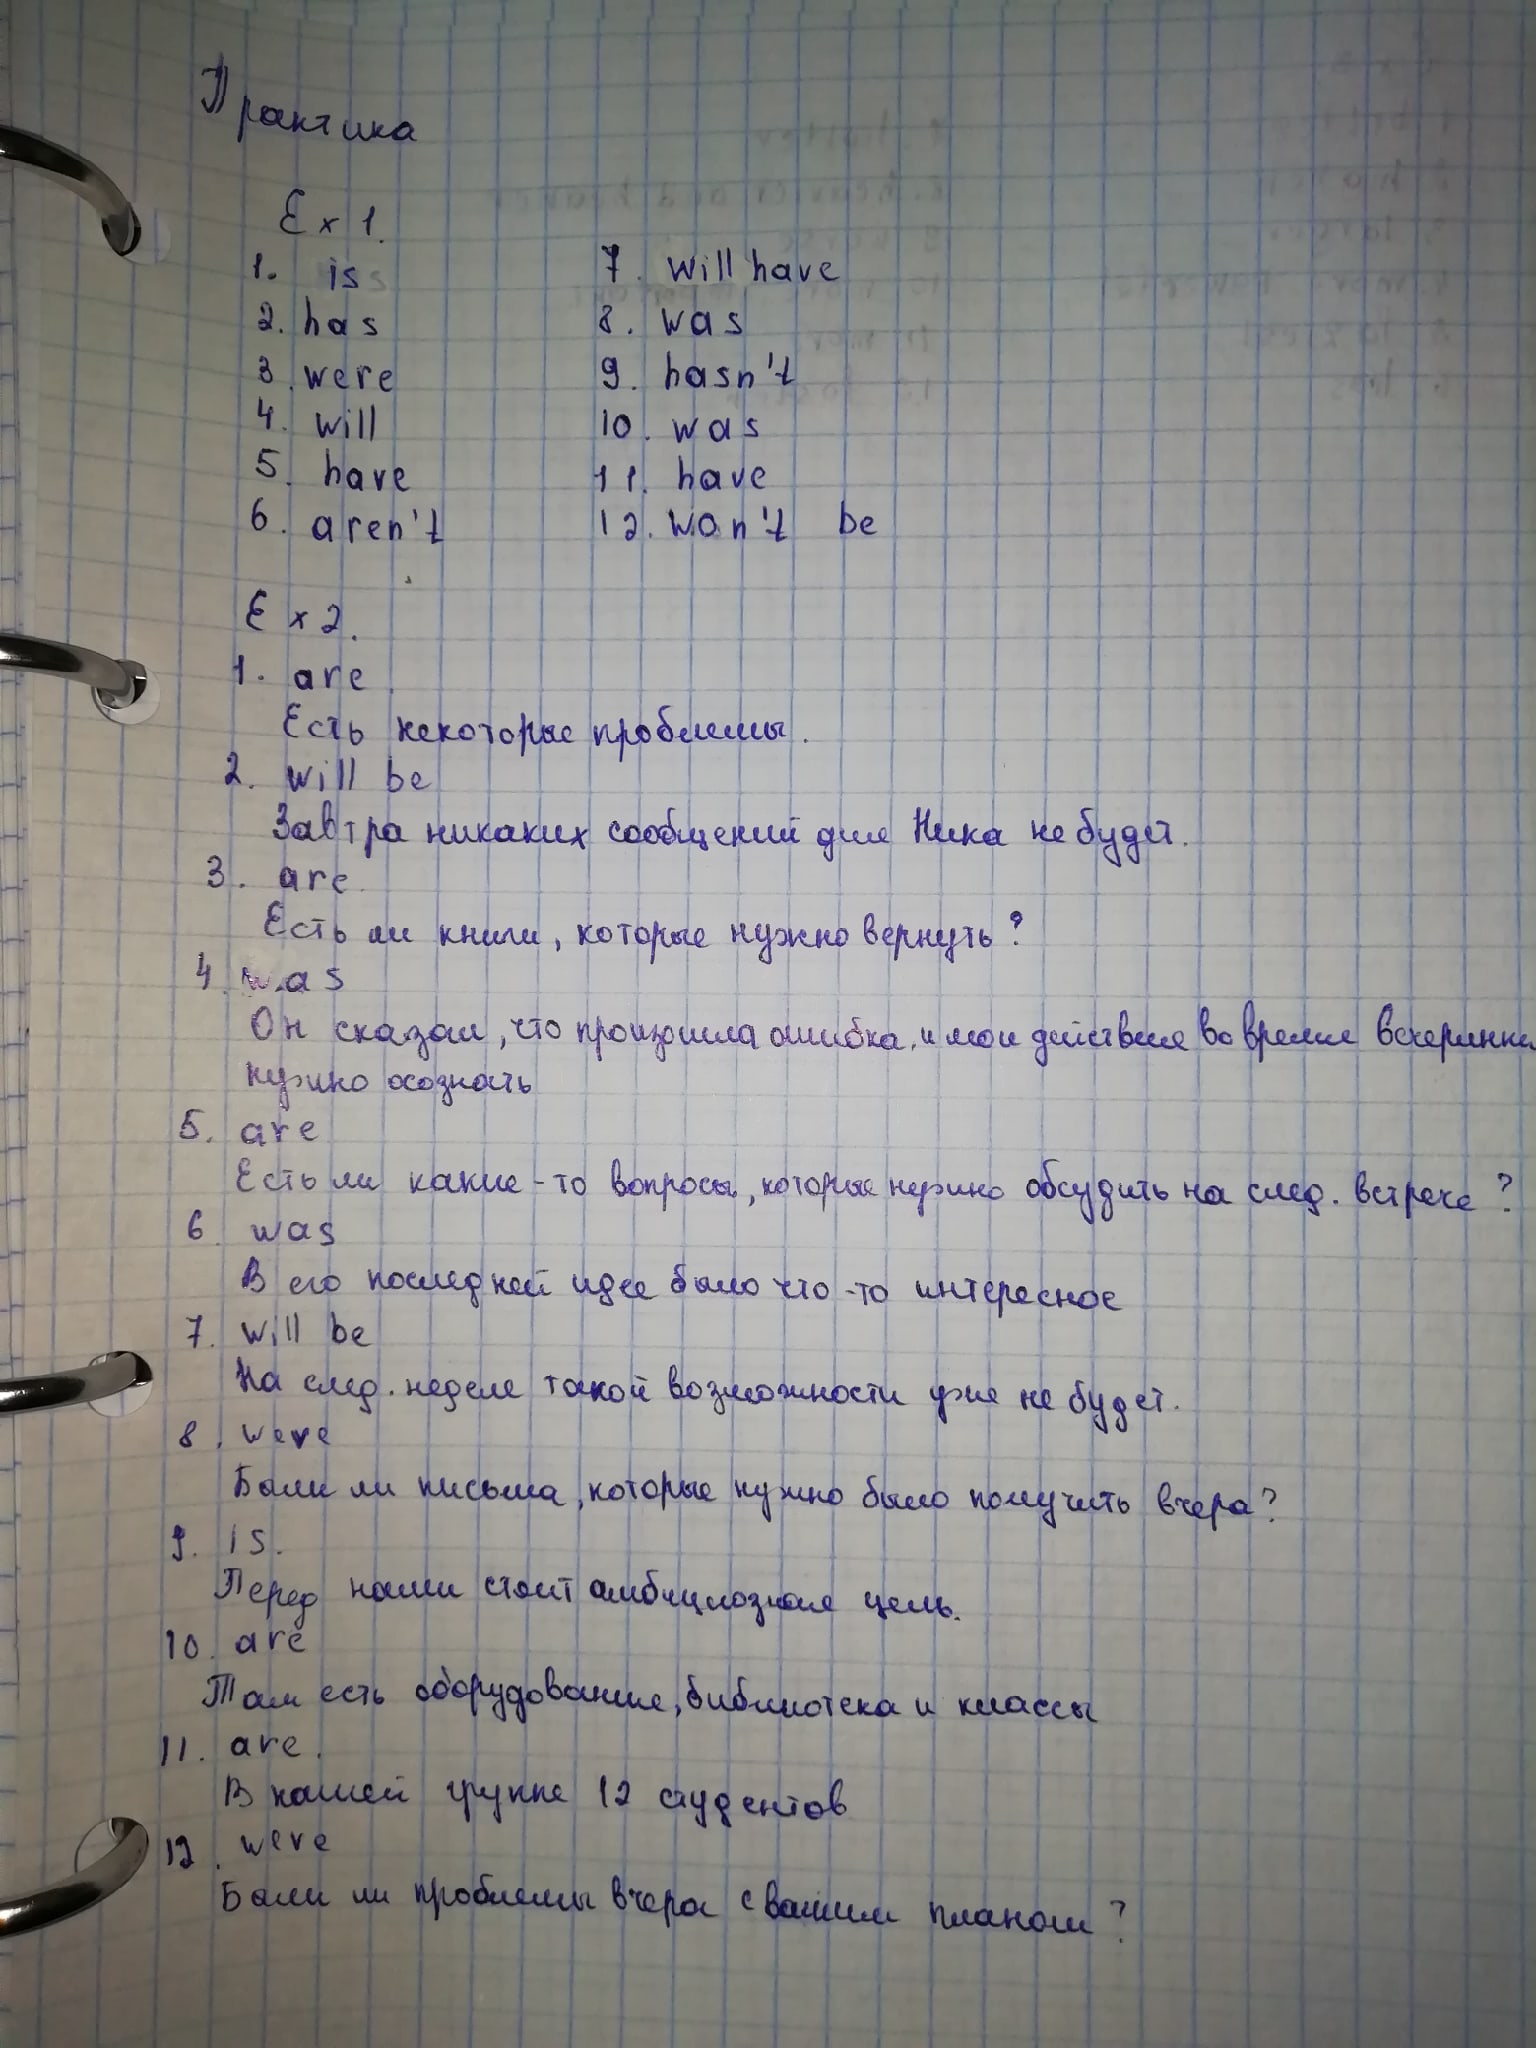 Практика
Ex 1.
1. is
2. has
3. were
4. will
5. have
6. aren't
7. will have
8. was
9. hasn't
10. was
11. have
12. won't be
Ex 2.
1. are.
Есть некоторые проблемы.
2. will be
Завтра никаких сообщений для Ника не будет.
3. are.
Есть ли книги, которые нужно вернуть?
4. was
Он сказал, что произошла ошибка, и мои действия во время вечеринки
нужно осознать
5. are
Есть ли какие-то вопросы, которые нужно обсудить на след. встрече?
6. was
В его последней идее было что-то интересное
7. will be
На след. неделе такой возможности уже не будет.
8. were
Были ли письма, которые нужно было получить вчера?
9. is.
Перед нами стоит амбициозная цель.
10. are
Там есть оборудование, библиотека и классы
11. are.
В нашей группе 12 студентов
12. were
Были ли проблемы вчера с вашим планом?